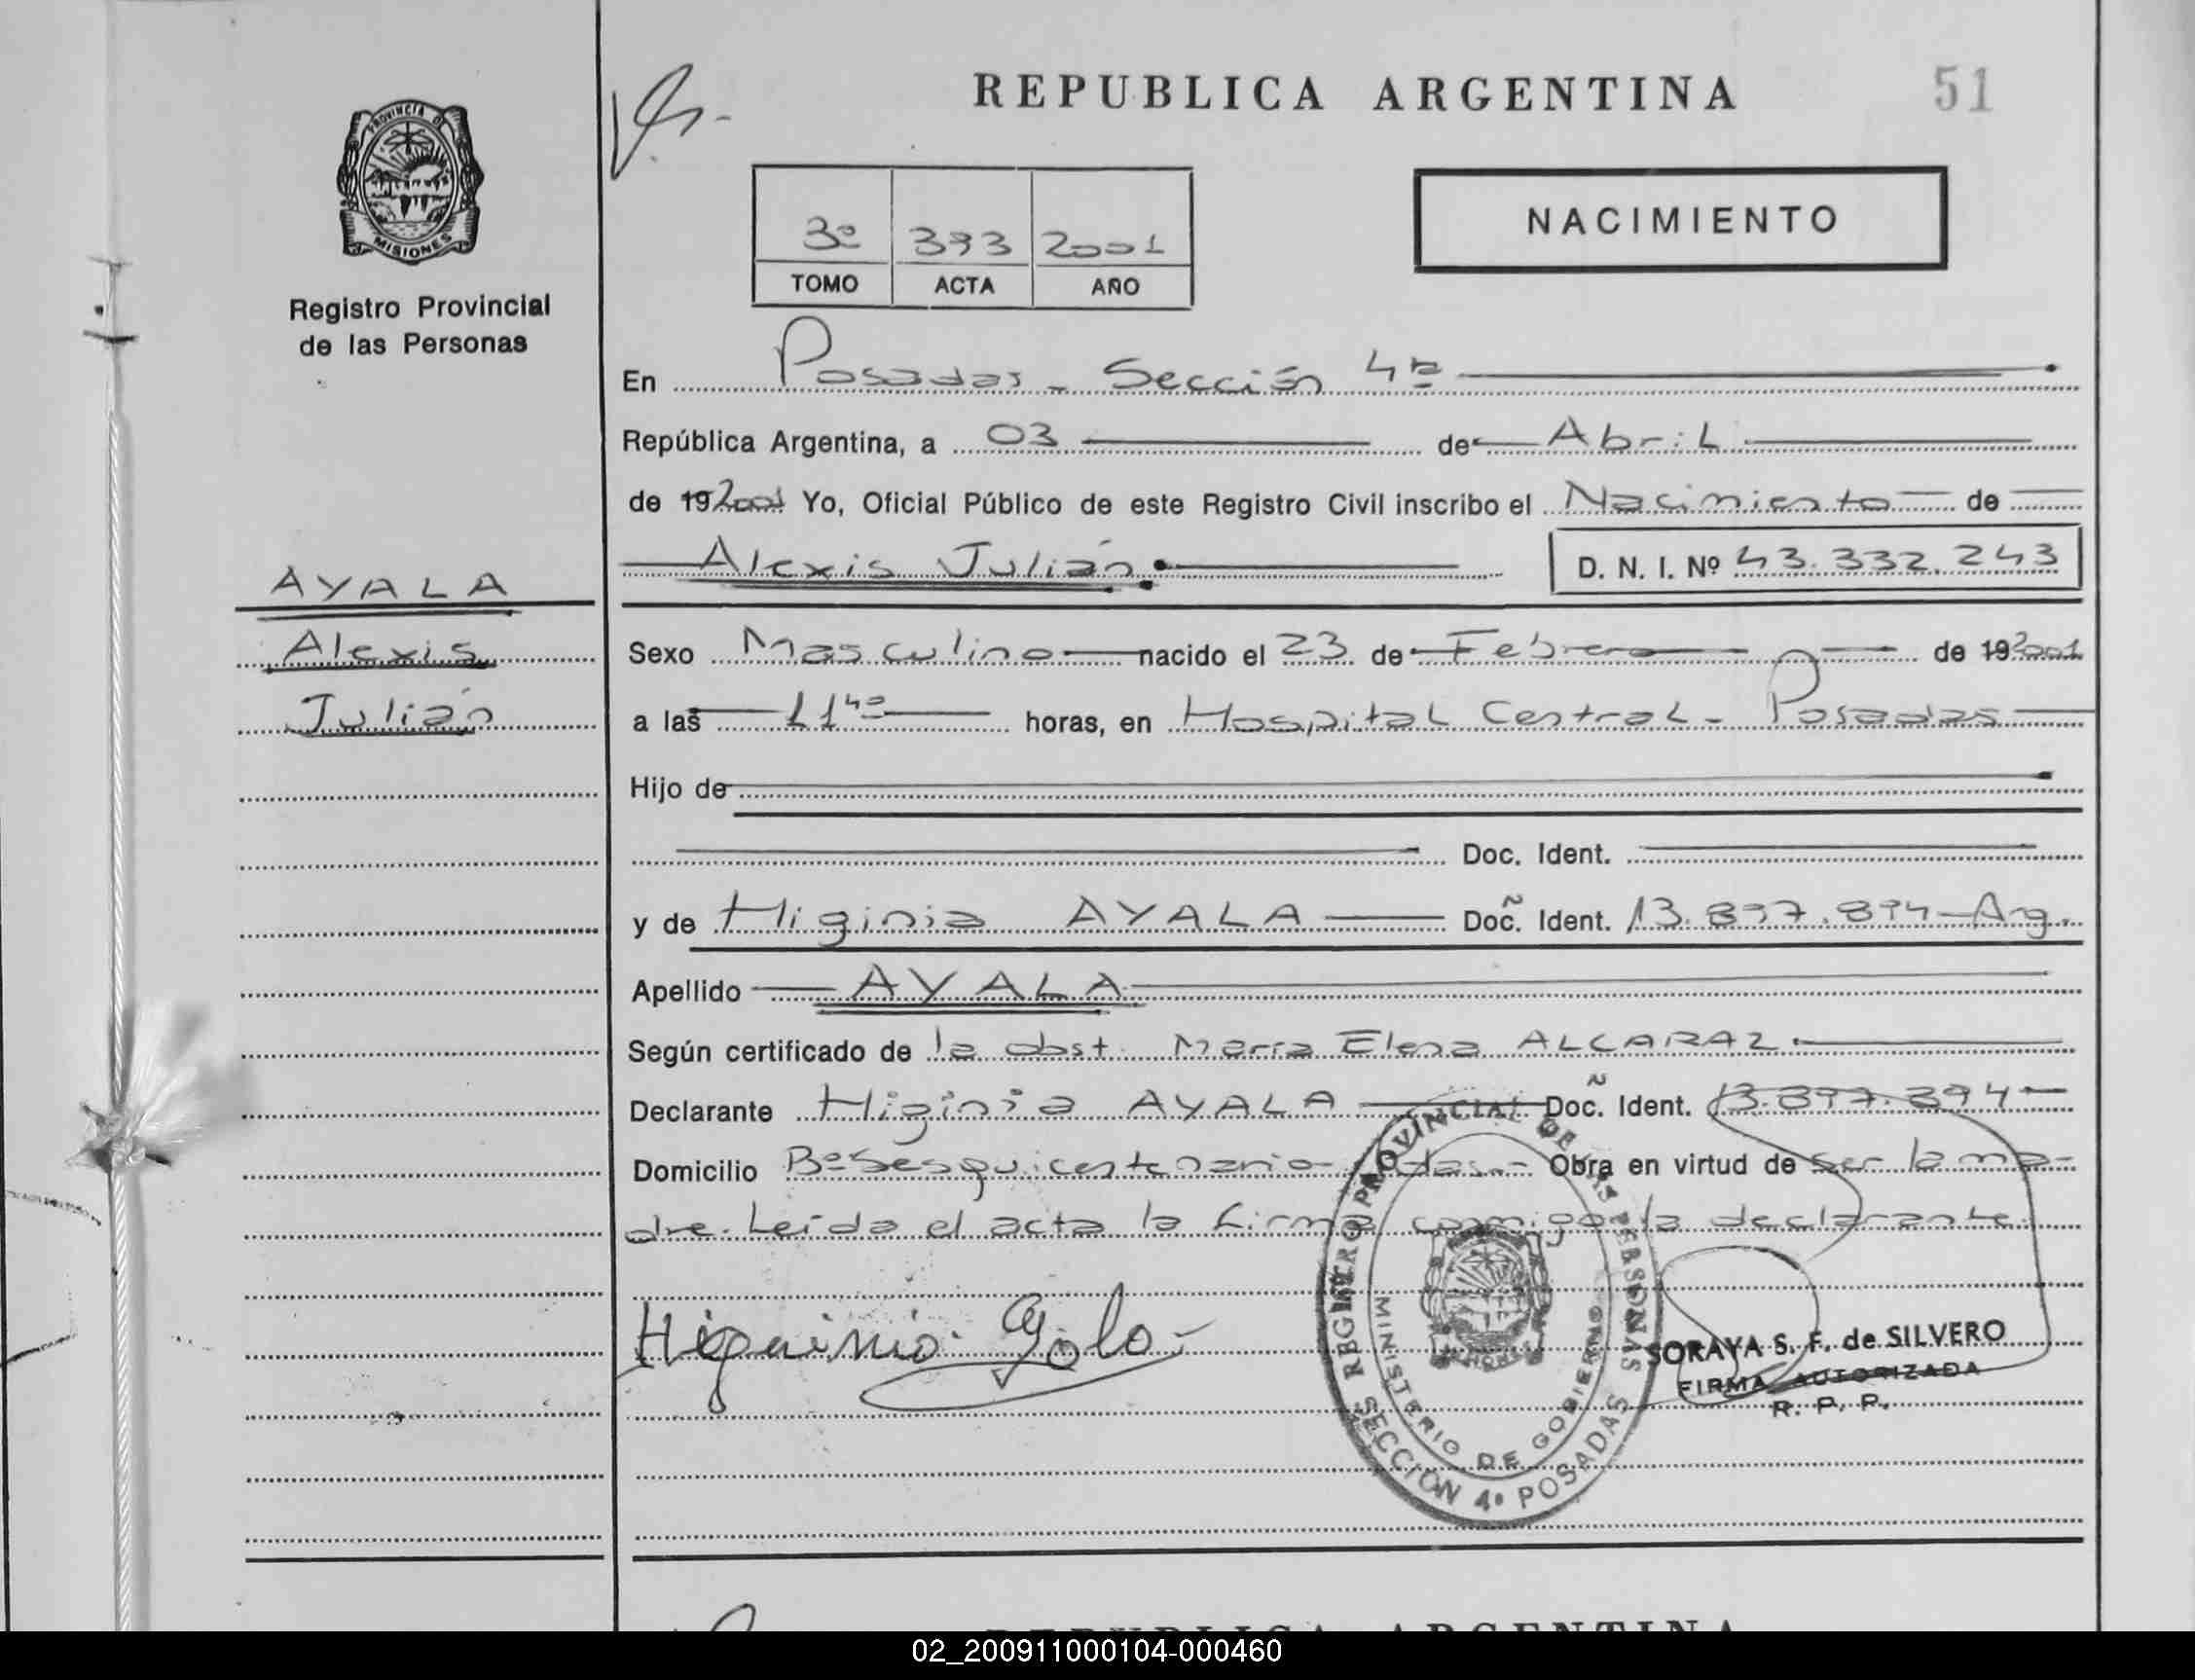 REPUBLICA ARGENTINA
51
PROVINCIA DE
MISIONES
Registro Provincial
de las Personas
3º 393 2001
TOMO ACTA AÑO
NACIMIENTO
En Posadas - Sección 4ª
República Argentina, a 03 de Abril
de 19 2001 Yo, Oficial Público de este Registro Civil inscribo el Nacimiento de
Alexis Julián D. N. I. Nº 43.332.243
AYALA
Alexis
Julián
Sexo Masculino nacido el 23 de Febrero de 19 2001
a las 11 45 horas, en Hospital Central - Posadas
Hijo de
Doc. Ident.
y de Higinia AYALA Doc. Ident. 13.897.894 - Arg.
Apellido AYALA
Según certificado de la obst. María Elena ALCARAZ
Declarante Higinia AYALA Doc. Ident. 13.897.894
Domicilio Bº Sesquicentenario - Pdas. - Obra en virtud de ser la ma-
dre. Leída el acta la firma conmigo la declarante.
REGISTRO PROVINCIAL DE LAS PERSONAS
MINISTERIO DE GOBIERNO
SECCION 4ª POSADAS
SORAYA S. F. de SILVERO
FIRMA AUTORIZADA
R. P. P.
REPUBLICA ARGENTINA
02_200911000104-000460